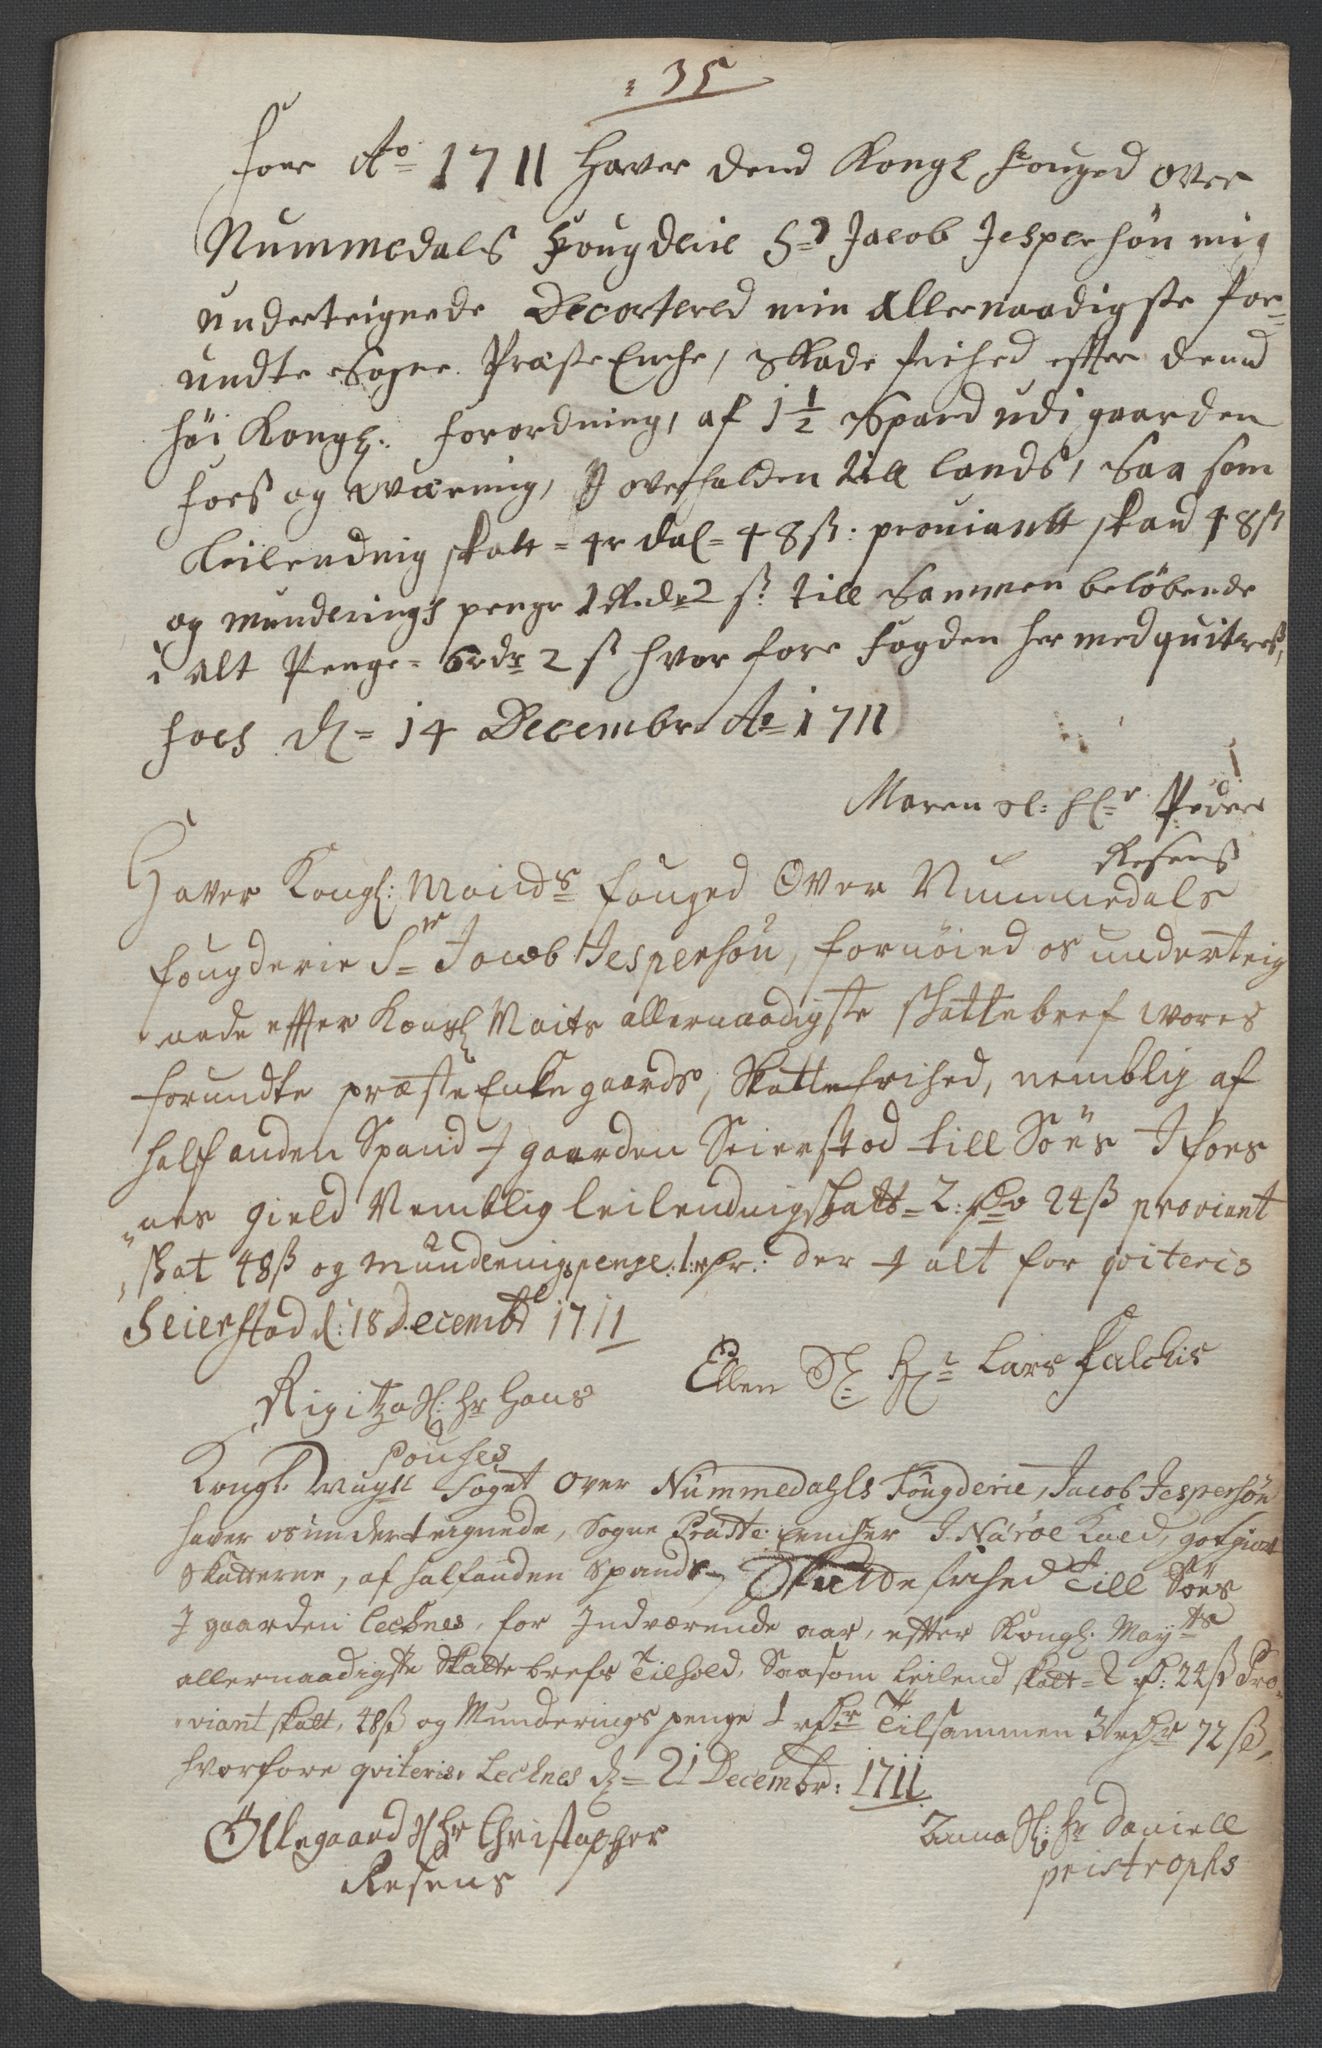 : 35
Foer Ao 1711 Hafver dend Kongl fouged over
Nummedals Fougderie Sr Jacob Jesperhøn mig
underteignede Decortered min allernaadigste for-
undte Sogne Præste Enche, Skade frihed efter dend
høi Kongl: forordning, af 1 1/2 Spand udi gaarden
foes og Wærning, J overhalden till lands, Saa som
leilendnig skatt = 4r dal = 48 ß: proviantt skad 48ß
og munderings penge 1 Rdr 2 ß: till Sammen beløbende
i alt Penge = 6rdr 2 ß hvor fore Fogden her med quitres,
foes dl = 14 Decembr Ao 1711
Maren sl: Hr Peder
Resens
Haver Kongl: Maiids fouged Over Nummedals
fougderie Sr Jacob Jespersøn, fornøied os underteig
nede effter Kongl Maits allernaadigste skattebref wores
forundte præste Enke gaards, Skattefrihed, nemblig af
half anden Spand J gaarden Seierstad till Söes J foes
nes gield Nemblig leilendnigskatt = 2: rdr 24ß proviant
skat 48ß og munderingspenge: 1: rdr: der J alt for qviteris
Seierstad d: 18 decembr 1711
Ellen Sl: Hr Lars Falchis
Rigitza Sl: Hr Hans
Pouhes
Kongl. Mayst Foget over Nummedahls Fougderie, Jacob Jespersøn
haver os underteignede, Sogne Præste Encher J Nærøe Kald, godgiort
Skatterne, af halfanden Spands Skattefrihed Till Söes
J gaarden Lechnes, for Indværende aar, efter Kongl. Mayts
allernaadigste Skatte brefs Tilhold, Saasom Leilend skatt = 2 rd: 24ß Pro-
viant skatt, 48ß og Munderings penge 1 rdr Tilsammen 3 rdr 72 ß,
hvorfore qviteris. Lechnes dl = 21 Decembr: 1711
Ollegaard Sl Hr Christopher
Resens
Anna Sl: Hr Daniell
peistrophs